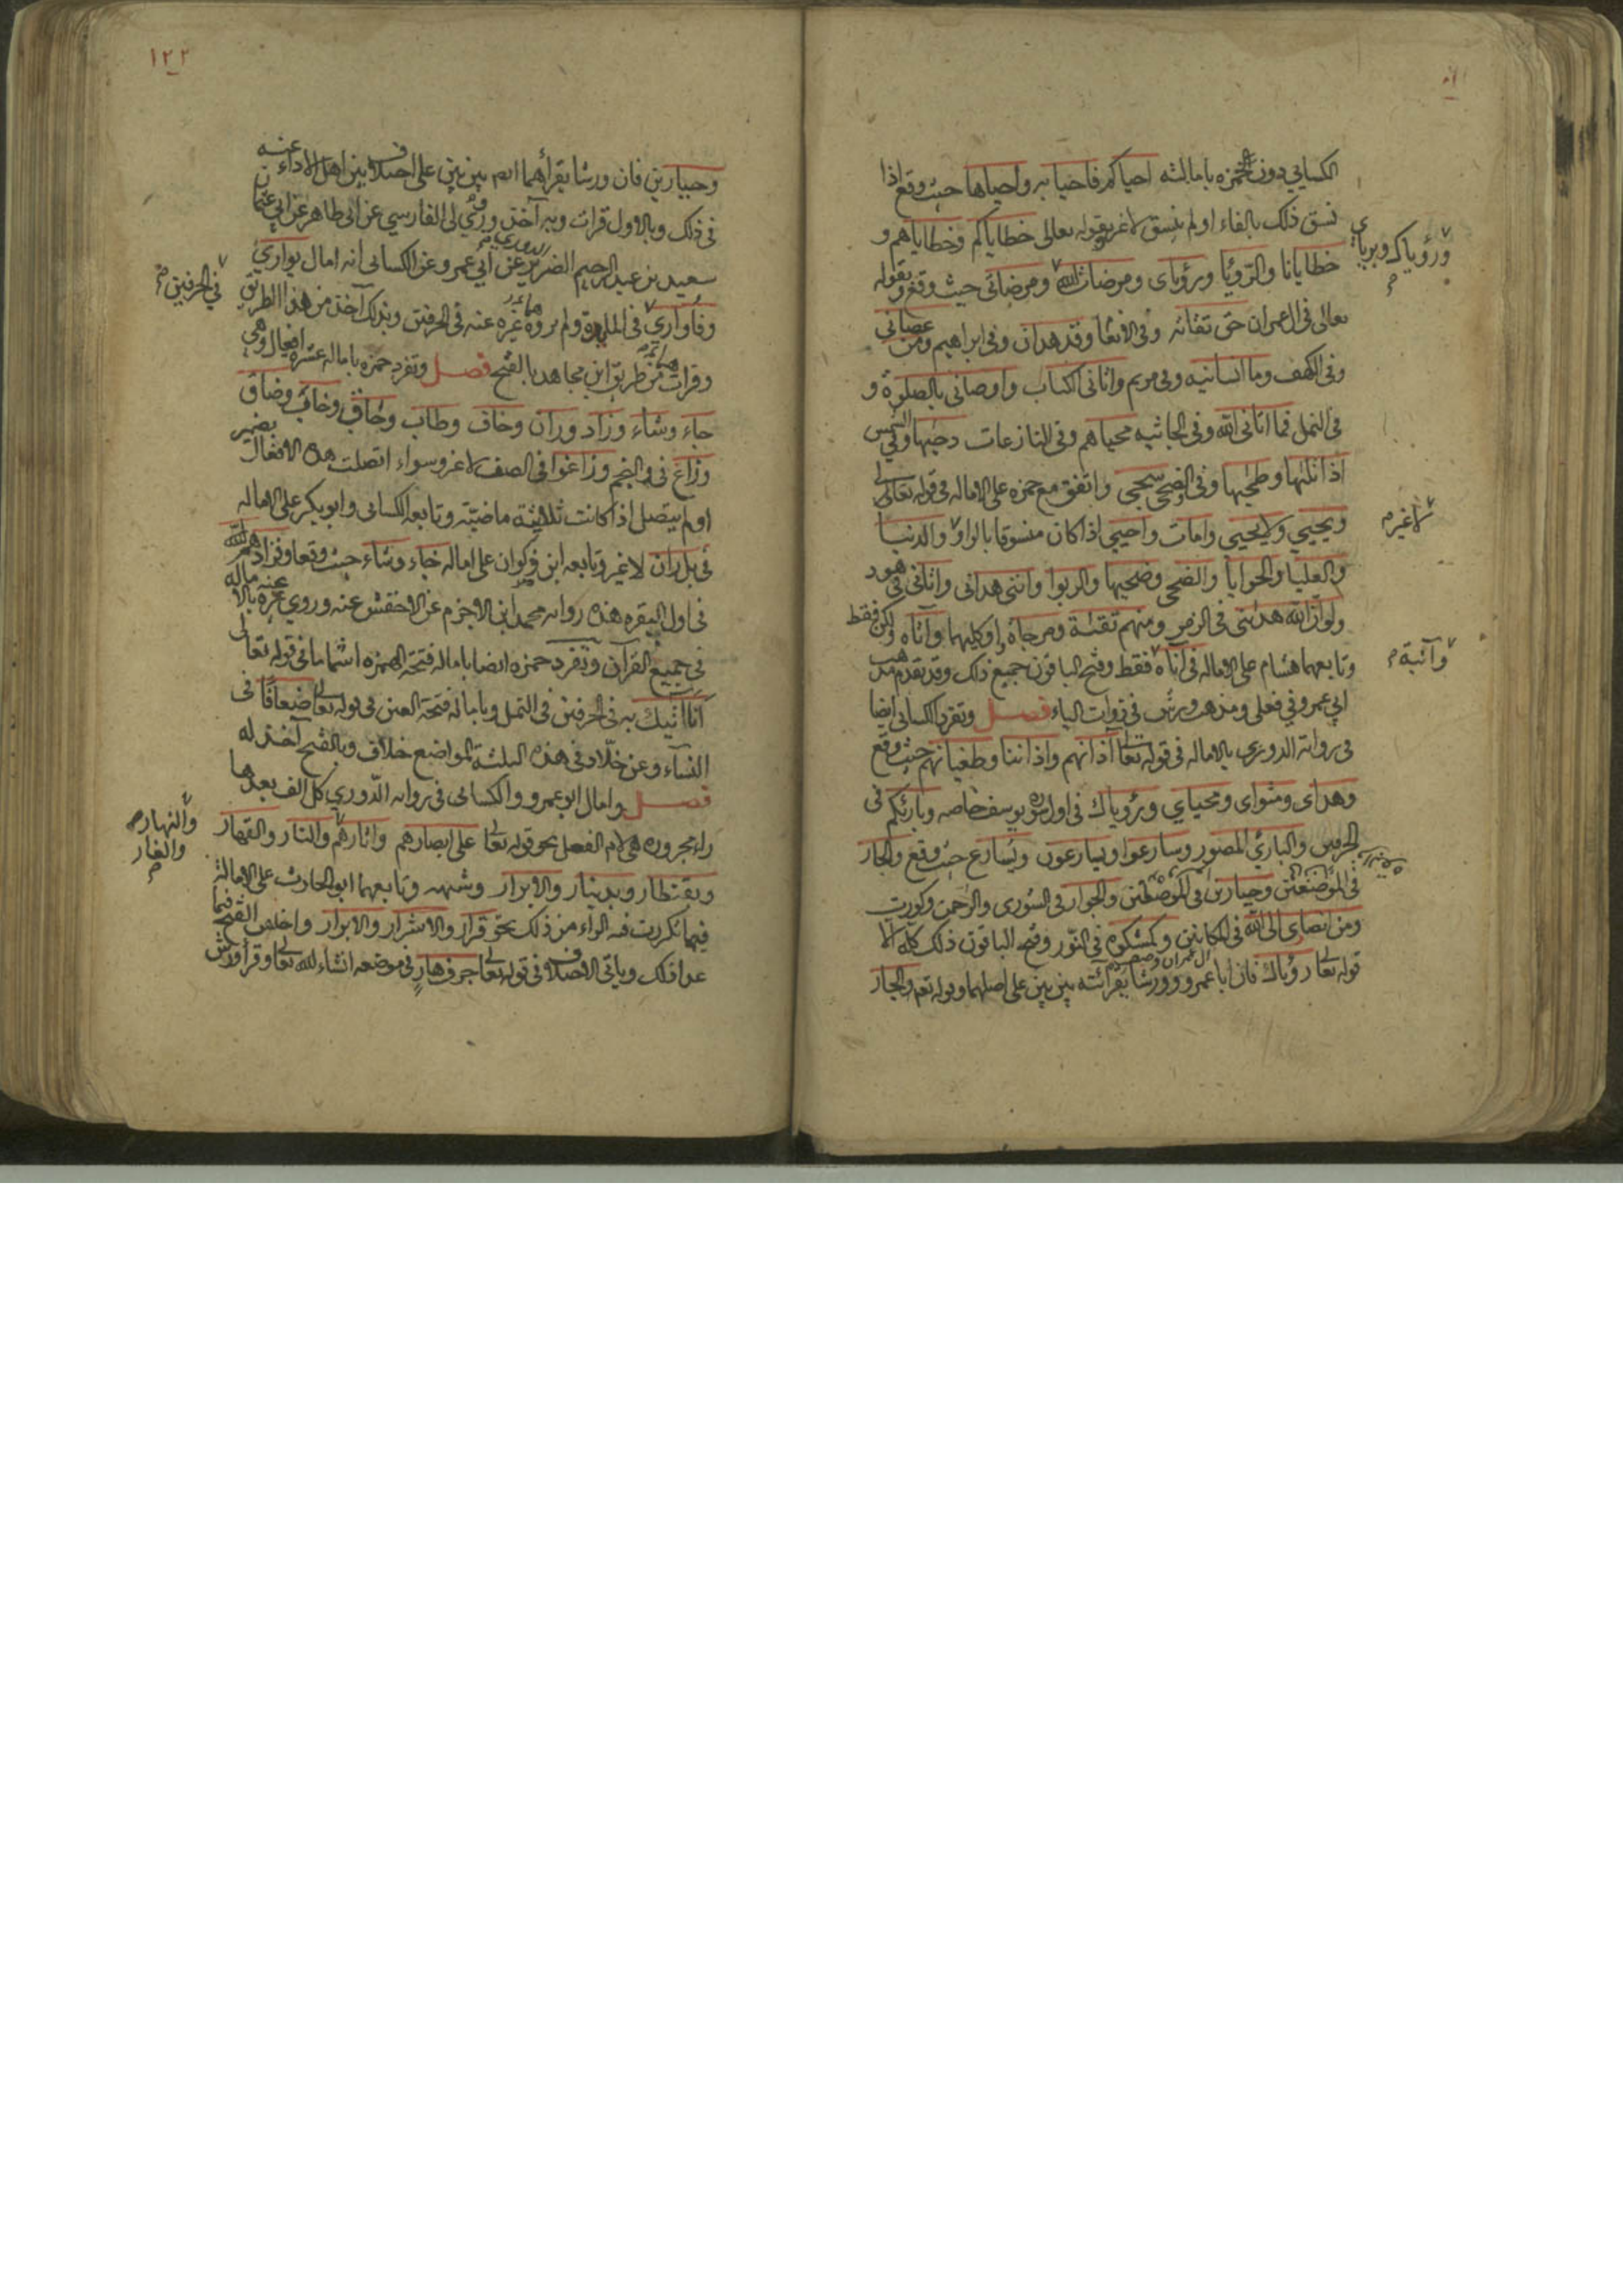 الكسائي دون حمزه بامالته احياكم فاحيا به واحياها حيث وقع اذا
نسق ذلك بالفاء او لم ينسق لا غير وبقوله تعالى خطاياكم وخطاياهم و
خطايانا والرؤيا ورؤياى ومرضات الله ومرضاتى حيث وقع وبقوله
تعالى فى ال عمران حق تقاته وفى الانعام وقد هدان وفى ابراهيم ومن عصانى
وفى الكهف وما انسانيه وفى مريم واتانى الكتاب واوصانى بالصلوة و
فى النمل فما اتانى الله وفى الجاثيه محياهم وفى النازعات دحيها وفي الشمس
اذا تليها وطحيها وفى الضحى سجى واتفق مع حمزه على الاماله فى قوله تعالى
ويحيي ولا يحيى وامات واحيى اذا كان منسوقا بالواو والدنيا
والعليا والحوايا والضحى وضحيها والربوا واننى هدانى واتانى فى هود
ولو ان الله هدىنى فى الزمر ومنهم تقىة ومزجاة او كليهما واناه ولكن فقط
وتابعهما هشام على الاماله فى اناه فقط وفتح الباقون جميع ذلك وقد تقدم مذهب
ابي عمرو في فعلى ومذهب ورش فى ذوات الياء فصل وتفرد الكسائى ايضا
فى رواية الدورى بالاماله فى قوله تعالى آذانهم واذاننا وطغيانهم حيث وقع
وهداى ومثواى ومحياي ورؤياك فى اول سورة يوسف خاصه وبارئكم فى
الحرفين والبارئ المصور وسارعوا ويسارعون ويسارع حيث وقع والجار
فى الموضعين وجبارين فى الموضعين والجوار فى الشورى والرحمن وكورت
ومن انصارى الى الله فى المكانين وكمشكوة في النور وفتح الباقون ذلك كله الا
قوله تعالى رؤياك فان ابا عمرو وورشا يقرائته بين بين على اصلهما وقوله تعالى والجار
ورؤياك وبرياي
لا غير م
وآتية م
١٢٢
وجبارين فان ورشا يقرأهما ايم بين بين على اختلاف بين اهل الاداء عنه
فى ذلك وبالاول قرات وبه آخذ وروي لى الفارسي عن ابى طاهر عن ابي عثمان
سعيد بن عبد الرحيم الضرير عن ابي عمرو الدوري عن الكسائى انه امال يواري
وفاواري فى المايدة ولم يروه غيره عنه فى الحرفين وبذلك آخذ من هذا الطريق
وقرات من طريق ابن مجاهد بالفتح فصل وتفرد حمزه باماله عشره افعال وهي
جاء وشاء وزاد وران وخاف وطاب وحاق وخاب وضاق
وزاغ فى والنجم وزاغوا فى الصف لا غير وسواء اتصلت هذه الافعال بضمير
او لم يتصل اذا كانت ثلاثية ماضية وتابعه الكسائى وابو بكر على الاماله
فى بل ران لا غير وتابعه ابن ذكوان على اماله جاء وشاء حيث وقعا وفزادهم الله
فى اول البقره هذه رواية محمد ابن الاخرم عن الاخفش عنه وروي غيره بالاماله عنه
في جميع القرآن وتفرد حمزه ايضا باماله فتحة الهمزه اشماما فى قوله تعالى
انا آتيك به فى الحرفين فى النمل وباماله فتحة العين فى قوله تعالى ضعافا فى
النساء وعن خلاد فى هذه الثلثة المواضع خلاف وبالفتح آخذ له
فصل وامال ابو عمرو والكسائى فى رواية الدوري كل الف بعدها
راء مجروره هي لام الفعل نحو قوله تعالى على ابصارهم واثارهم والنار والقهار
وبقنطار وبدينار والابرار وشبهه وتابعهما ابو الحارث على الامالة
فيما تكررت فيه الراء من ذلك نحو قرار والاشرار والابرار واخلص الفتح فيما
عدا ذلك وياتى الاختلاف فى قوله تعالى جرف هار فى موضعه انشاء الله تعالى وقرأ ورش
في الحرفين م
والنهار م
والغار